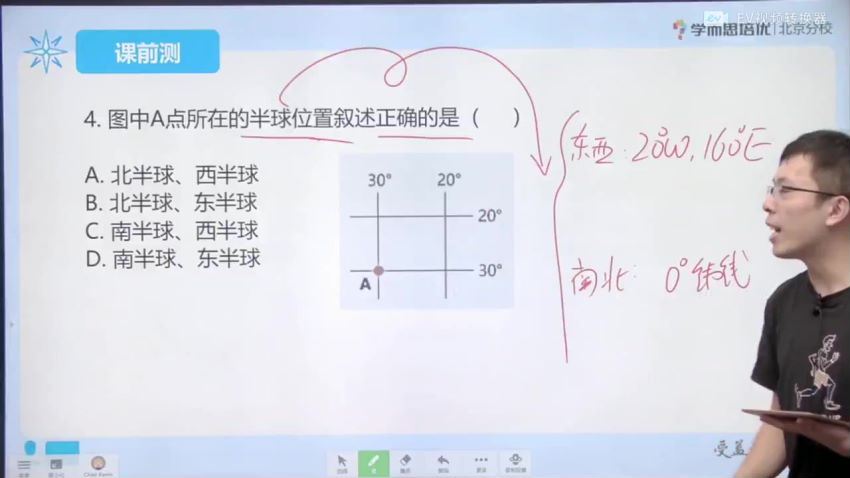 EV视频转换器
学而思培优 北京分校
课前测
4. 图中A点所在的半球位置叙述正确的是（ ）
A. 北半球、西半球
B. 北半球、东半球
C. 南半球、西半球
D. 南半球、东半球
30° 20°
20°
30°
A
东西: 20°W, 160°E
南北: 0°纬线